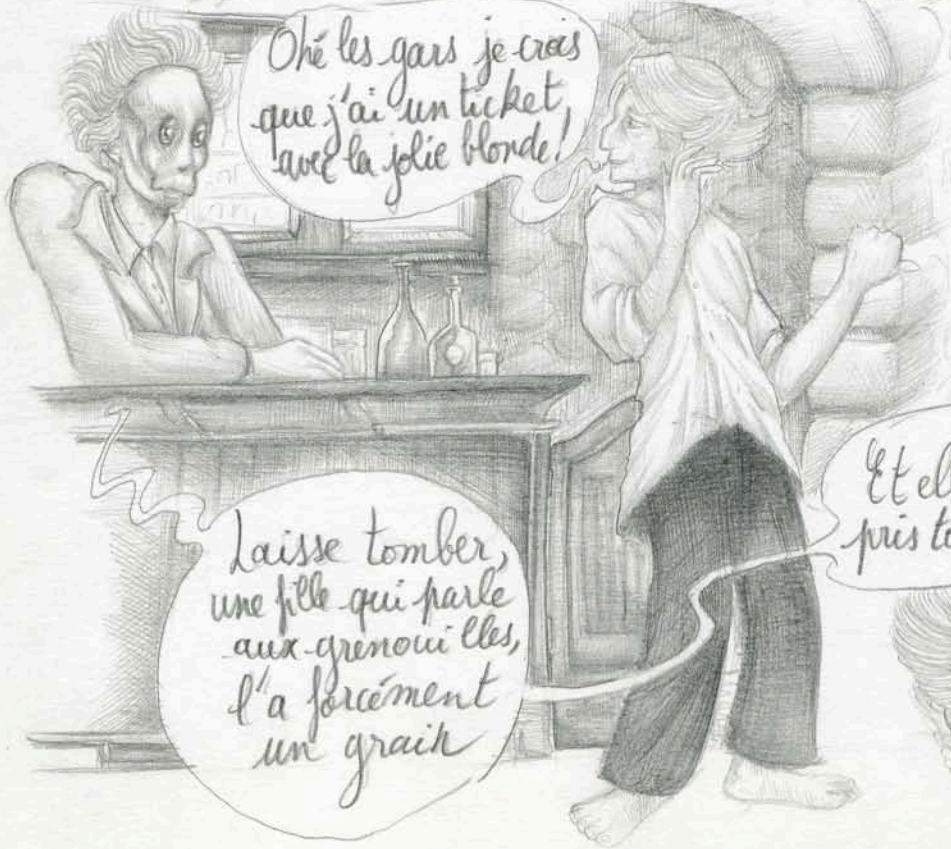 Ohé les gars je crois
que j'ai un ticket,
avec la jolie blonde!
Laisse tomber,
une fille qui parle
aux grenouilles,
l'a forcément
un grain
Et el
pris to